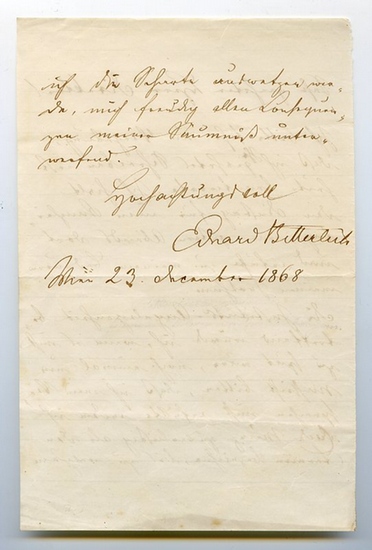 ich die Scharte auswetzen wer-
de, mich freudig allen Consequen-
zen meiner Säumniß unter-
werfend.
Hochachtungsvoll
Eduard Bitterlich
Wien 23. December 1868